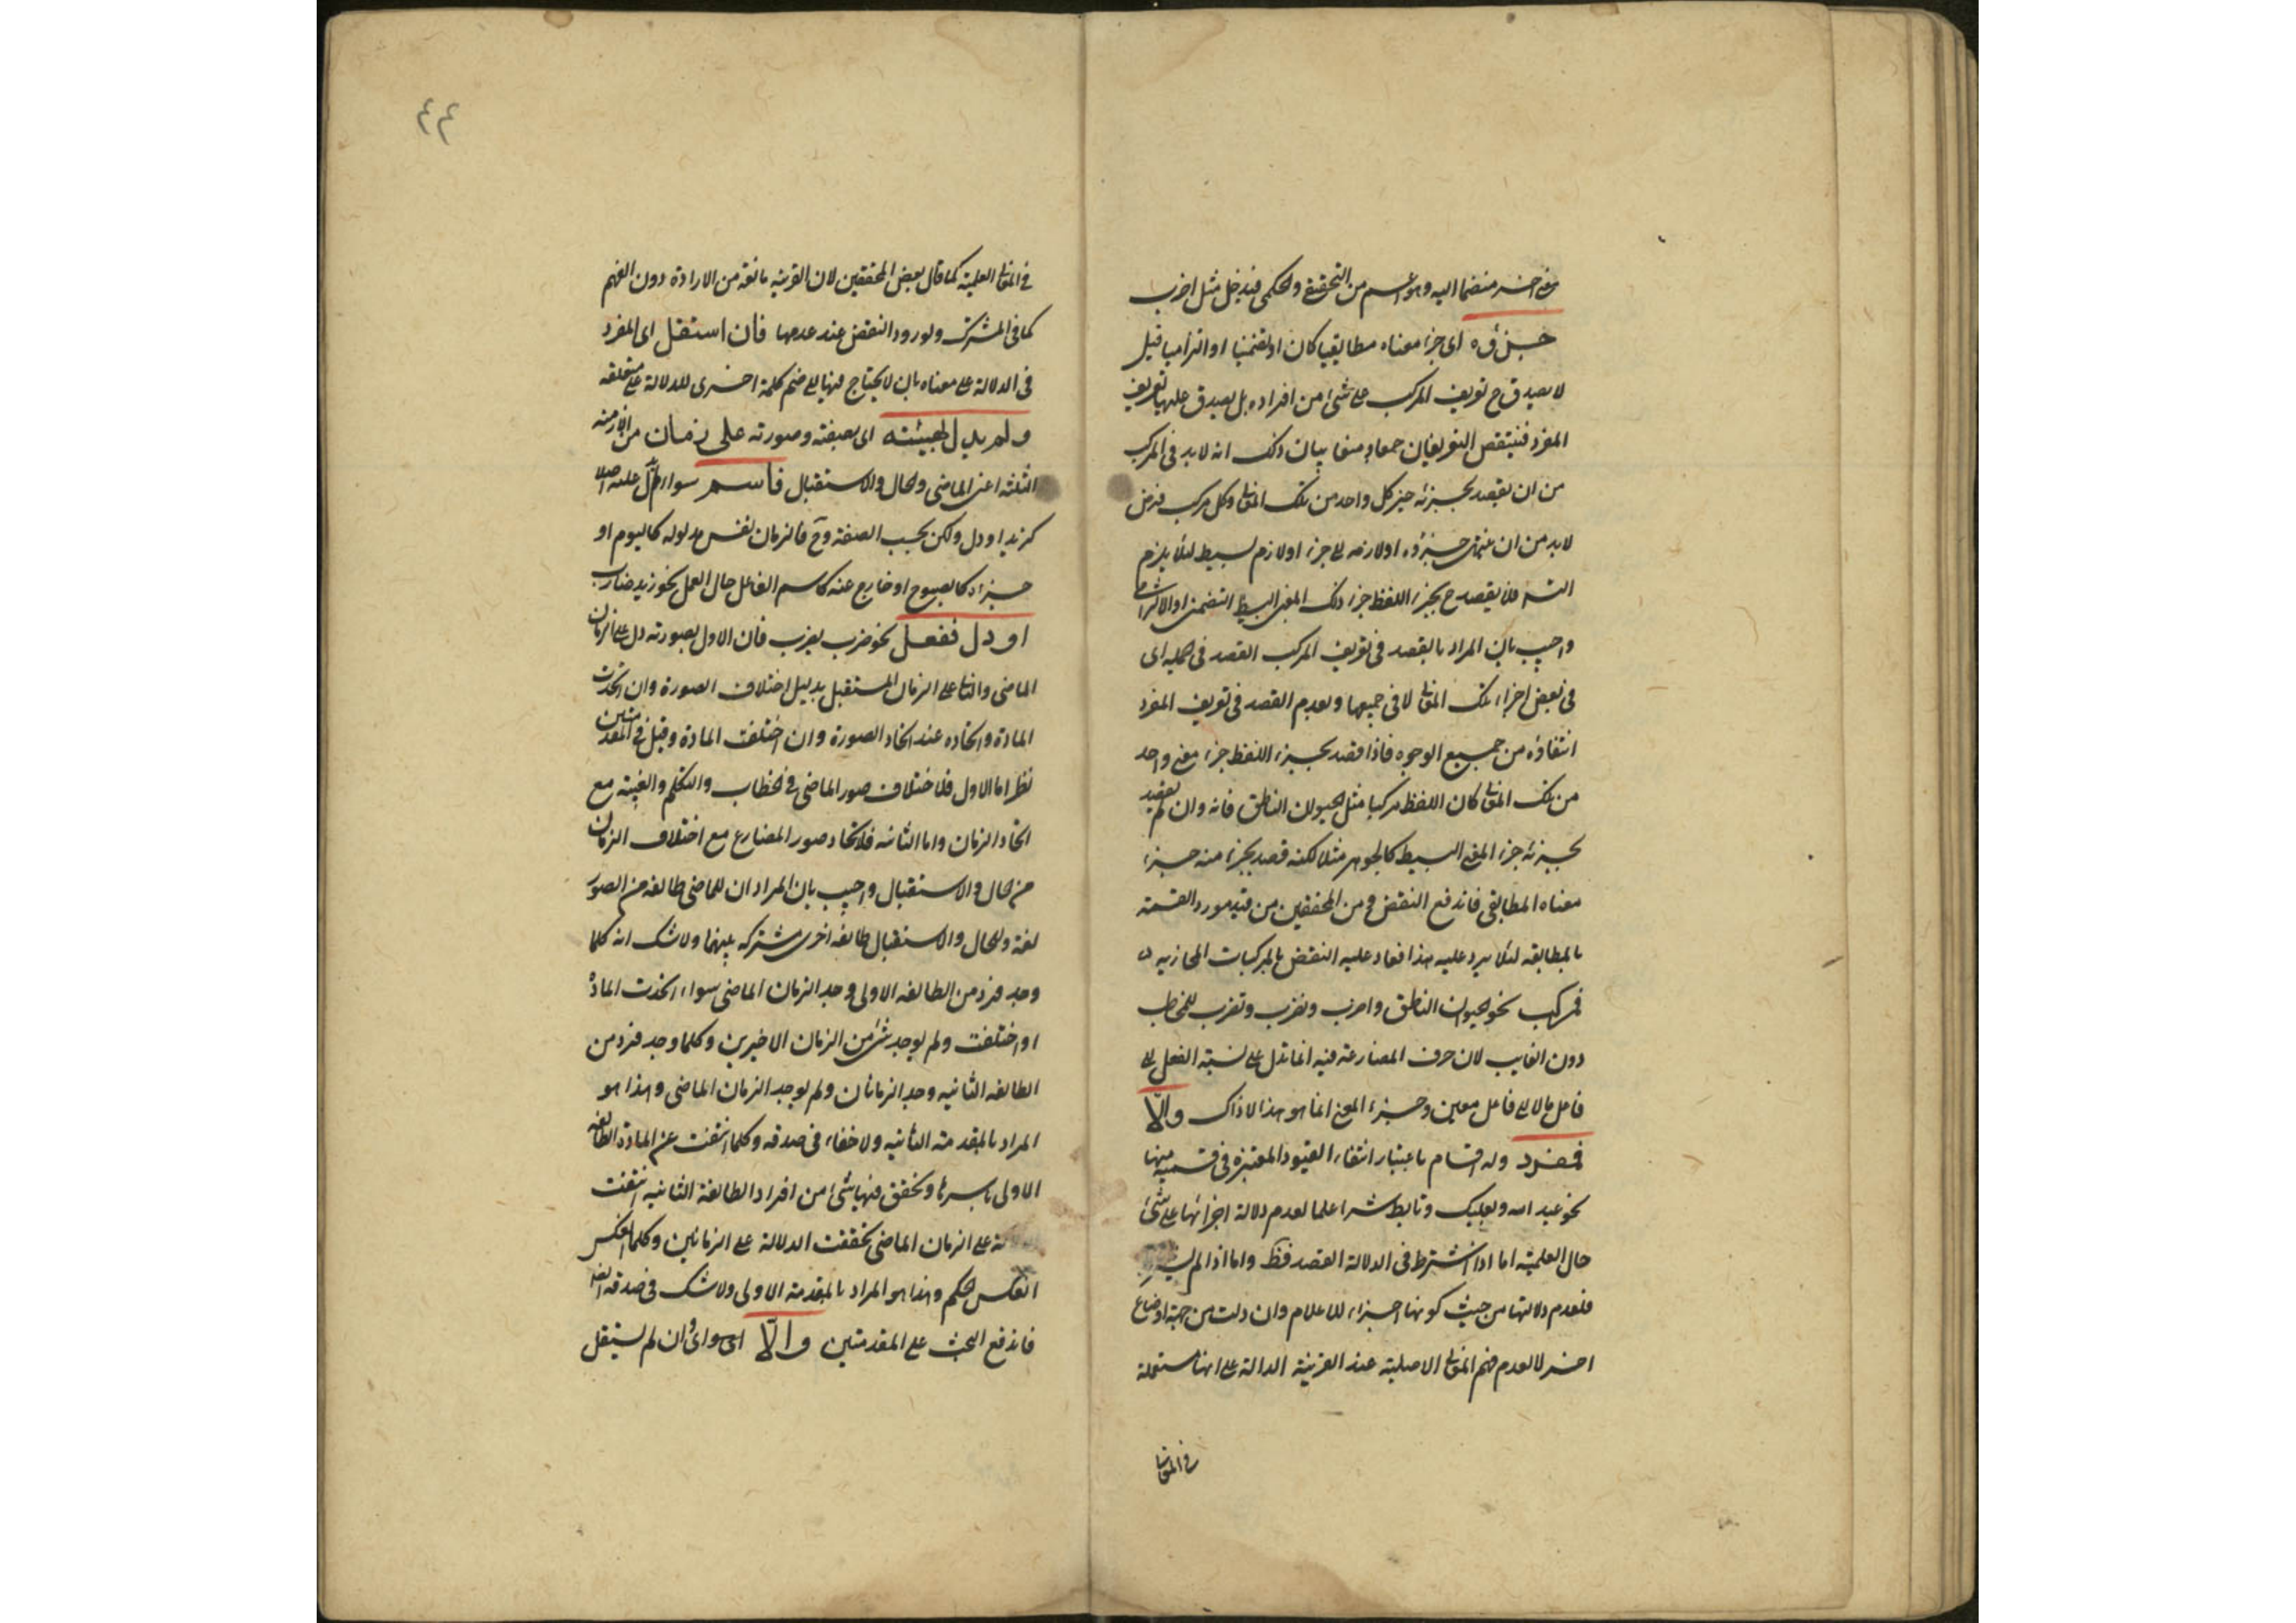 اخر منضما اليه وهو اعم من التحقيقى والحكمى فيدخل مثل اضرب
جزؤه اى جزء معناه مطابقيا كان او تضمنيا او التزاميا قيل
لا يصدق ح تعريف المركب على شئ من افراده بل يصدق عليها تعريف
المفرد فينتقض التعريفان جمعا و منعا بيان ذلك انه لا بد فى المركب
من ان يقصد بجزئه جزء كل واحد من تلك المعانى وكل مركب فرض
لا بد من ان جزؤه او لازمه الى جزء او لازم بسيط لئلا يلزم
التسه فلا يقصد ح بجزء اللفظ جزء ذلك المعنى البسيط التضمنى او الالتزامى
واجيب بان المراد بالقصد فى تعريف المركب القصد فى الجملة اى
فى بعض اجزاء تلك المعانى لا فى جميعها وبعدم القصد فى تعريف المفرد
انتفاؤه من جميع الوجوه فاذا قصد بجزء اللفظ جزء معنى واحد
من تلك المعانى كان اللفظ مركبا مثل الحيوان الناطق فانه وان لم يقصد
بجزئه جزء المعنى البسيط كالجوهر مثلا لكنه قصد بجزء منه جزء
معناه المطابقى فاندفع النقض ومن المحققين من قيد مورد القسمة
بالمطابقه لئلا يرد عليه هذا فعاد عليه النقض بالمركبات المجازيه
فمركب نحو الحيوان الناطق واضرب ونضرب وتضرب للمخاطب
دون الغايب لان حرف المضارعة فيه انما تدل على نسبة الفعل الى
فاعل ما لا الى فاعل معين وجزء المعنى انما هو هذا لا ذاك والا
فمفرد وله اقسام باعتبار انتفاء القيود المعتبرة فى قسميه منها
نحو عبد الله وبعلبك وتابط شرا علما لعدم دلالة اجزائها على شئ
حال العلمية اما اذا اشترط فى الدلالة القصد فظ واما اذا لم
فلعدم دلالتها من حيث كونها اجزاء للاعلام وان دلت من جهة اوضاع
اخر لا لعدم فهم المعانى الاصلية عند القرينة الدالة على انها مستعملة
فى المعانى
٤٤
فى المعانى العلمية كما قال بعض المحققين لان القرينة مانعة من الارادة دون الفهم
كما فى المشترك ولورود النقض عند عدمها فان استقل اى المفرد
فى الدلالة على معناه بان لا يحتاج فيها الى ضم كلمة اخرى للدلالة على متعلقه
ولم يدل بهيئته اى بصيغته وصورته على زمان من الازمنه
الثلثه اعنى الماضى والحال والاستقبال فاسم سواء لم يدل عليه اصلا
كزيد او دل ولكن لا بحسب الصيغة وح فالزمان نفس مدلوله كاليوم او
جزؤه كالصبوح او خارج عنه كاسم الفاعل حال العمل نحو زيد ضارب
او دل ففعل نحو ضرب يضرب فان الاول بصورته دل على الزمان
الماضى والثانى على الزمان المستقبل بدليل اختلاف الصورة وان اتحدت
المادة واتحاده عند اتحاد الصورة وان اختلفت المادة وقيل فى المقدمتين
نظر اما الاول فلاختلاف صور الماضى فى الخطاب والتكلم والغيبة مع
اتحاد الزمان واما الثانيه فلاتحاد صور المضارع مع اختلاف الزمان
من الحال والاستقبال واجيب بان المراد ان للماضى طائفه من الصور
لغة وللحال والاستقبال طائفه اخرى مشتركه بينهما ولا شك انه كلما
وجد فرد من الطائفه الاولى وجد الزمان الماضى سواء اتحدت المادة
او اختلفت ولم يوجد شئ من الزمان الاخيرين وكلما وجد فرد من
الطائفه الثانيه وجد الزمانان ولم يوجد الزمان الماضى وهذا هو
المراد بالمقدمة الثانيه ولا خفاء فى صدقه وكلما انتفت عن المادة الطائفه
الاولى باسرها وتحقق فيها شئ من افراد الطائفة الثانيه انتفت
على الزمان الماضى تحققت الدلالة على الزمانين وكلما انعكس
انعكس الحكم وهذا هو المراد بالمقدمة الاولى ولا شك فى صدقه ايضا
فاندفع البحث على المقدمتين والا اى وان لم يستقل